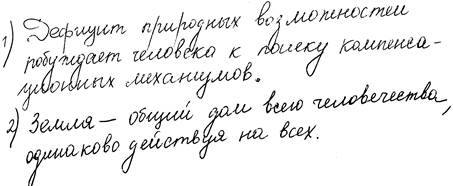 1) Дефицит природных возможностей
побуждает человека к поиску компенса-
ционных механизмов.
2) Земля – общий дом всего человечества,
одинаково действуя на всех.